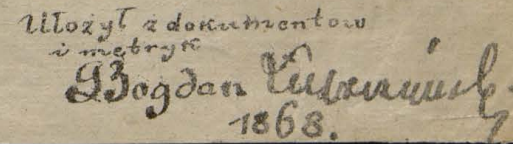 Ułożył z dokumentow
i metryk
Bogdan
1868.